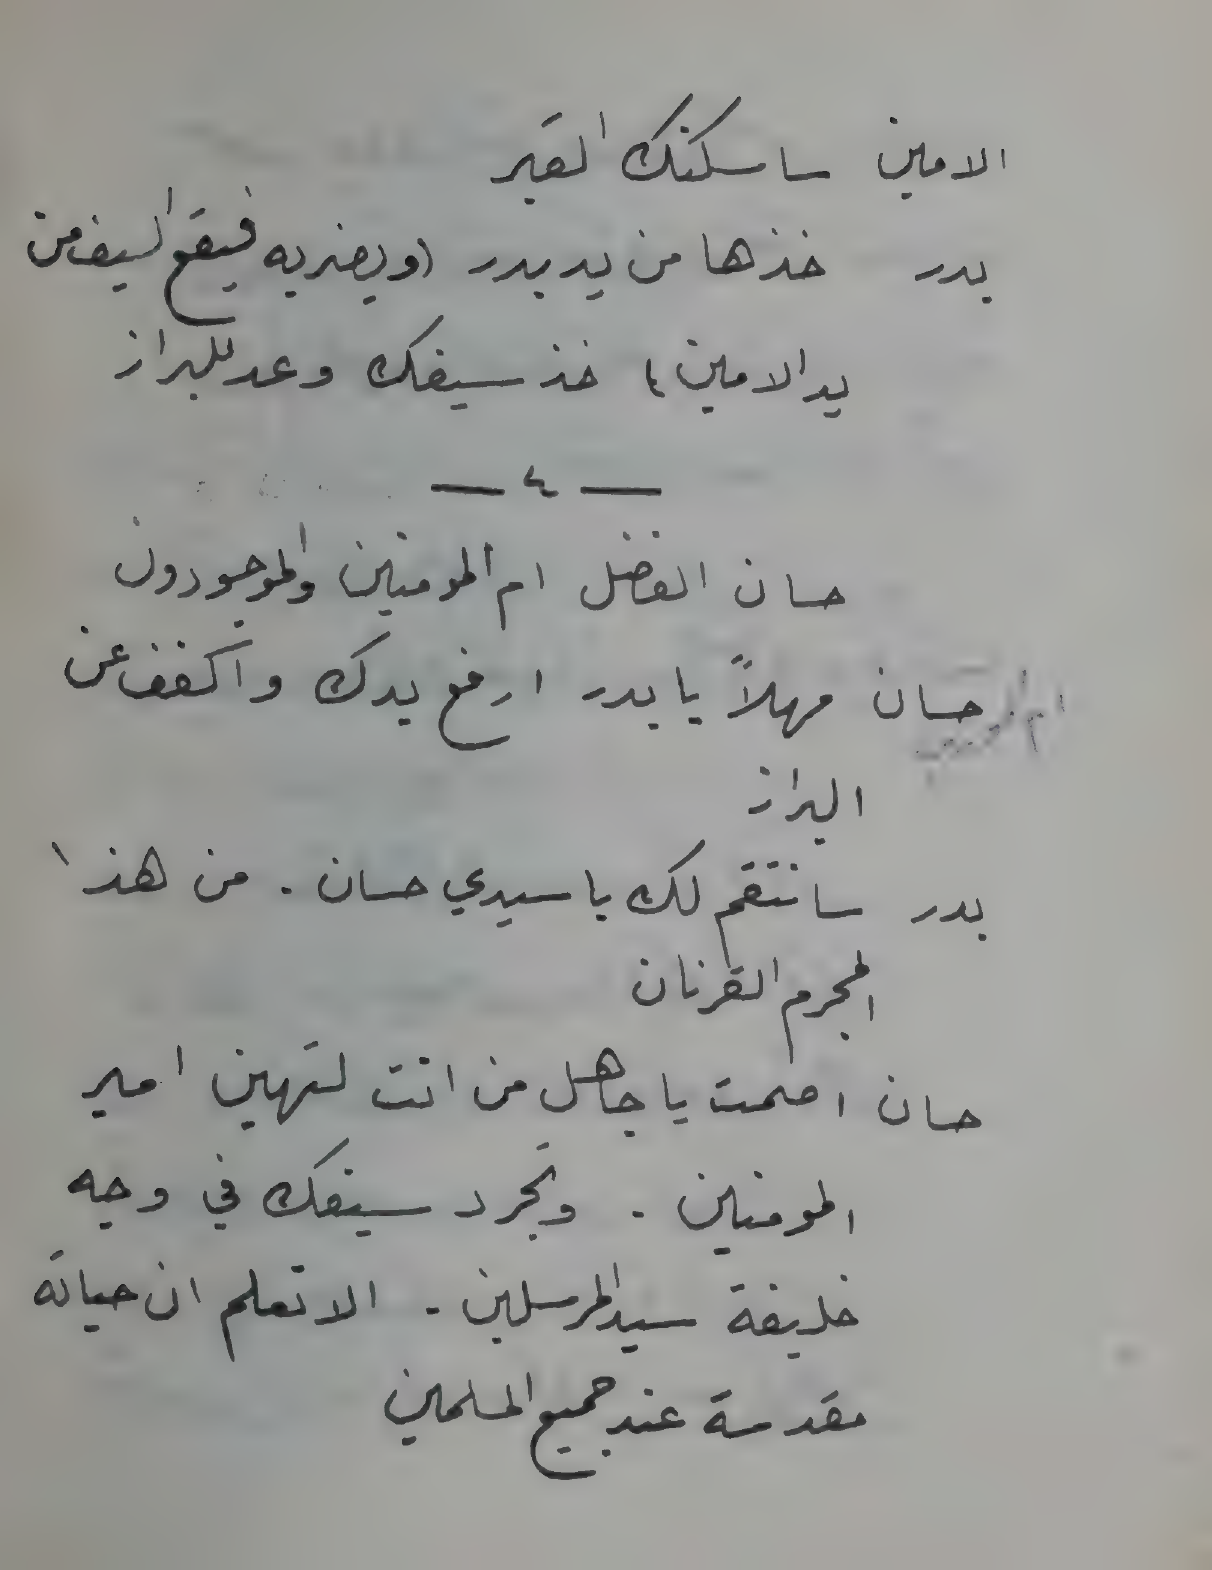 الامين ساسكنك القبر
بدر خذها من يد بدر (ويضربه فيقع السيف من
يد الامين) خذ سيفك وعد للبراز
— ٤ —
حسان الفضل ام المومنين والموجودون
حسان مهلاً يا بدر ارفع يدك واكفف عن
البراز
بدر سانتقم لك يا سيدي حسان . من هذا
المجرم القرنان
حسان اصمت يا جاهل من انت لتهين امير
المومنين . وتجرد سيفك في وجه
خليفة سيد المرسلين . الا تعلم ان حياته
مقدسة عند جميع المسلمين